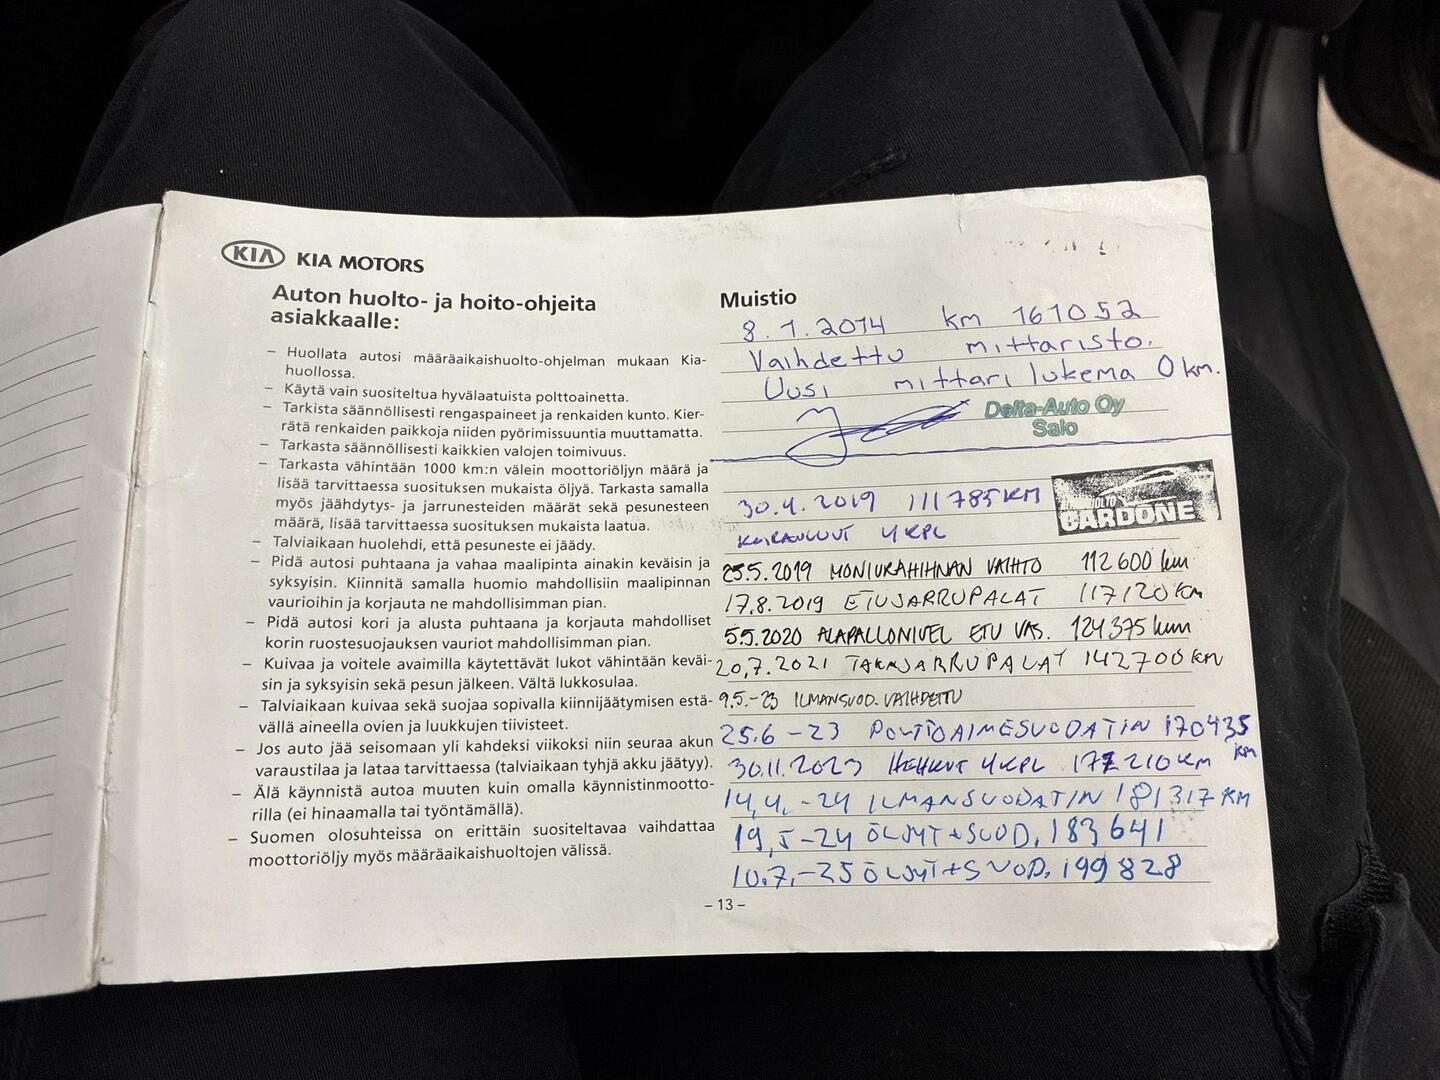 KIA KIA MOTORS
Auton huolto- ja hoito-ohjeita
asiakkaalle:
– Huollata autosi määräaikaishuolto-ohjelman mukaan Kia-
huollossa.
– Käytä vain suositeltua hyvälaatuista polttoainetta.
– Tarkista säännöllisesti rengaspaineet ja renkaiden kunto. Kier-
rätä renkaiden paikkoja niiden pyörimissuuntia muuttamatta.
– Tarkasta säännöllisesti kaikkien valojen toimivuus.
– Tarkasta vähintään 1000 km:n välein moottoriöljyn määrä ja
lisää tarvittaessa suosituksen mukaista öljyä. Tarkasta samalla
myös jäähdytys- ja jarrunesteiden määrät sekä pesunesteen
määrä, lisää tarvittaessa suosituksen mukaista laatua.
– Talviaikaan huolehdi, että pesuneste ei jäädy.
– Pidä autosi puhtaana ja vahaa maalipinta ainakin keväisin ja
syksyisin. Kiinnitä samalla huomio mahdollisiin maalipinnan
vaurioihin ja korjauta ne mahdollisimman pian.
– Pidä autosi kori ja alusta puhtaana ja korjauta mahdolliset
korin ruostesuojauksen vauriot mahdollisimman pian.
– Kuivaa ja voitele avaimilla käytettävät lukot vähintään keväi-
sin ja syksyisin sekä pesun jälkeen. Vältä lukkosulaa.
– Talviaikaan kuivaa sekä suojaa sopivalla kiinnijäätymisen estä-
vällä aineella ovien ja luukkujen tiivisteet.
– Jos auto jää seisomaan yli kahdeksi viikoksi niin seuraa akun
varaustilaa ja lataa tarvittaessa (talviaikaan tyhjä akku jäätyy).
– Älä käynnistä autoa muuten kuin omalla käynnistinmootto-
rilla (ei hinaamalla tai työntämällä).
– Suomen olosuhteissa on erittäin suositeltavaa vaihdattaa
moottoriöljy myös määräaikaishuoltojen välissä.
Muistio
8.1.2014 km 161052
Vaihdettu mittaristo.
Uusi mittari lukema 0 km.
Delta-Auto Oy
Salo
30.4.2019 111785KM
KOIRANLUUT 4KPL
AUTO
CARDONE
25.5.2019 MONIURAHIHNAN VAIHTO 112600 km
17.8.2019 ETUJARRUPALAT 117120KM
5.5.2020 ALAPALLONIVEL ETU VAS. 124375 km
20.7.2021 TAKAJARRUPALAT 142700KM
9.5.-23 ILMANSUOD. VAIHDETTU
25.6-23 POLTTOAINESUODATIN 170435
km
30.11.2023 HEHKUT 4KPL 177210KM
14.4.-24 ILMANSUODATIN 181317KM
19.5-24 ÖLJYT+SUOD. 183641
10.7.-25 ÖLJYT+SUOD. 199828
– 13 –